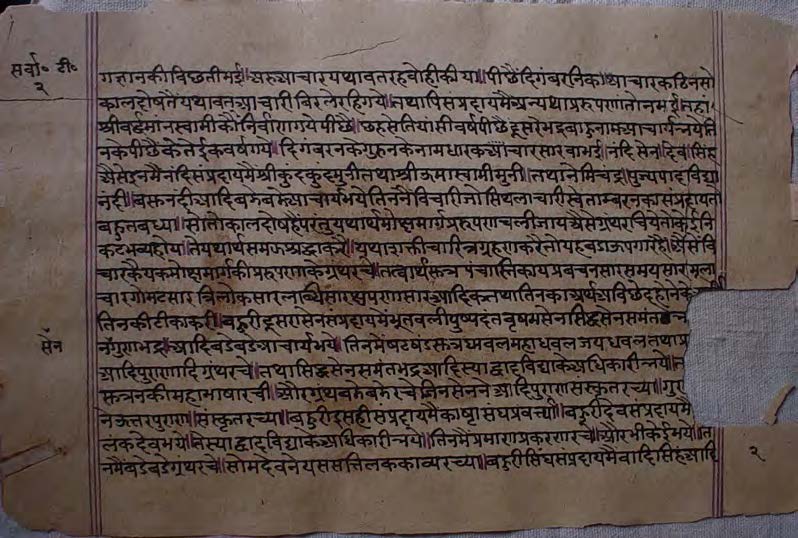 सर्वा॰ टी॰
२
गज्ञानकी विछती भई॥ अरु आचार यथावत रह वोही कीया॥ पीछैं दिगंबरनिका आचार कठिन सो
कालदोषतैं यथावत आचारी विरले रहि गये॥ तथापि संप्रदायमै अन्यथा प्ररूपणा तो न भई॥ तहां
श्रीवर्द्धमानस्वामीकौं निर्वाण गये पीछै॥ छहसेतियांसी वर्ष पीछै दूसरे भद्रबाहुनाम आचार्य भये ति
नके पीछै केतेईक वर्ष गये॥ दिगंबरनके गुरुनके नामधारक च्यारि सारवा भई॥ नंदि सेन देव सिंह
अैसे इनमै नंदिसंप्रदायमैं श्रीकुंदकुंदमुनी तथा श्रीउमास्वामीमुनी॥ तथा नेमिचंद्र॥ पूज्यपाद विद्या
नंदी॥ वसुनंदी आदि बडेबडे आचार्य भये तिननैं विचारी जो सिथलाचारी स्वेताम्बरनका संप्रदाय तो
बहुत बध्या॥ सो तो कालदोष है परंतु यथार्थ मोक्षमार्ग प्ररूपणा चली जाय अैसे ग्रंथ रचिये तो केईनि
कटभव्य होय॥ ते यथार्थ समज श्रद्धा करै॥ यथाशक्ती चारित्र ग्रहण करै तो यह बडा उपगार है॥ अैसे वि
चारकै यक मोक्षमार्गकी प्ररूपणाके ग्रंथ रचे॥ तत्वार्थसूत्र पंचास्तिकाय प्रवचनसार समयसार मूला
चार गोमटसार त्रिलोकसार लब्धिसार क्षपणासार आदिक तथा तिनका अर्थ अविछेद होनेके अर्थि
तिनकी टीका करी॥ बहुरी दूसरा सेनसंप्रदायमें भूतवली पुष्पदंत वृषभसेन सिद्धसेन समंत
सेन
न गुणभद्र आदि बडेबडे आचार्य भये॥ तिनमैं षटषंडसूत्र धवल महाधवल जयधवल तथा
आदिपुराणादि ग्रंथ रचे॥ तथा सिद्धसेन समंतभद्र आदि स्याद्वादविद्याके अधिकारी भये॥
सूत्रनकी महाभाषा रची॥ और ग्रंथ बडेबडे रचे जिनसेनने आदिपुराण संस्कृत रच्या॥ गुण
न उत्तरपुराण॥ संस्कृत रच्या॥ बहुरी इसही संप्रदायमें काष्ठासंघ प्रवर्त्त्या॥ बहुरी देवसंप्रदायमै
लंकदेव भये॥ ते स्याद्वादविद्याके अधिकारी भये॥ तिनमैं प्रमाणप्रकरण रचे॥ और भी केई भये॥ ति
नमैं बडेबडे ग्रंथ रचे॥ सोमदेवने यससतिलक काव्य रच्या॥ बहुरी सिंघसंप्रदायमै वादिसिंह आदि
२